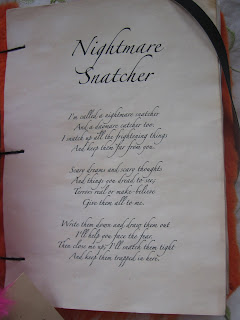 Nightmare
Snatcher
I'm called a nightmare snatcher
And a daymare catcher too.
I snatch up all the frightening things
And keep them far from you.
Scary dreams and scary thoughts
And things you dread to see,
Terrors real or make-believe
Give them all to me.
Write them down and draw them out
I'll help you face the fear.
Then close me up; I'll snatch them tight
And keep them trapped in here.